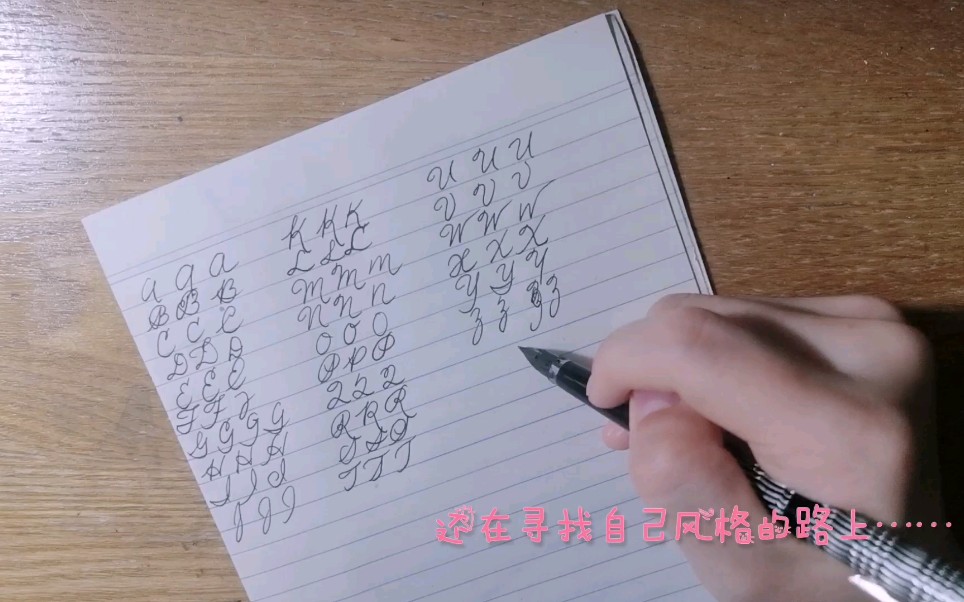 a a a
B B B
C C C
D D D
E E E
F F F
G G G G
H H H
I I I
J J J
K K K
L L L
M M M
N N N
O O O
P P P
Q Q Q
R R R
S S S
T T T
U U U
V V V
W W W
X X X
Y Y Y
z z z z
还在寻找自己风格的路上……